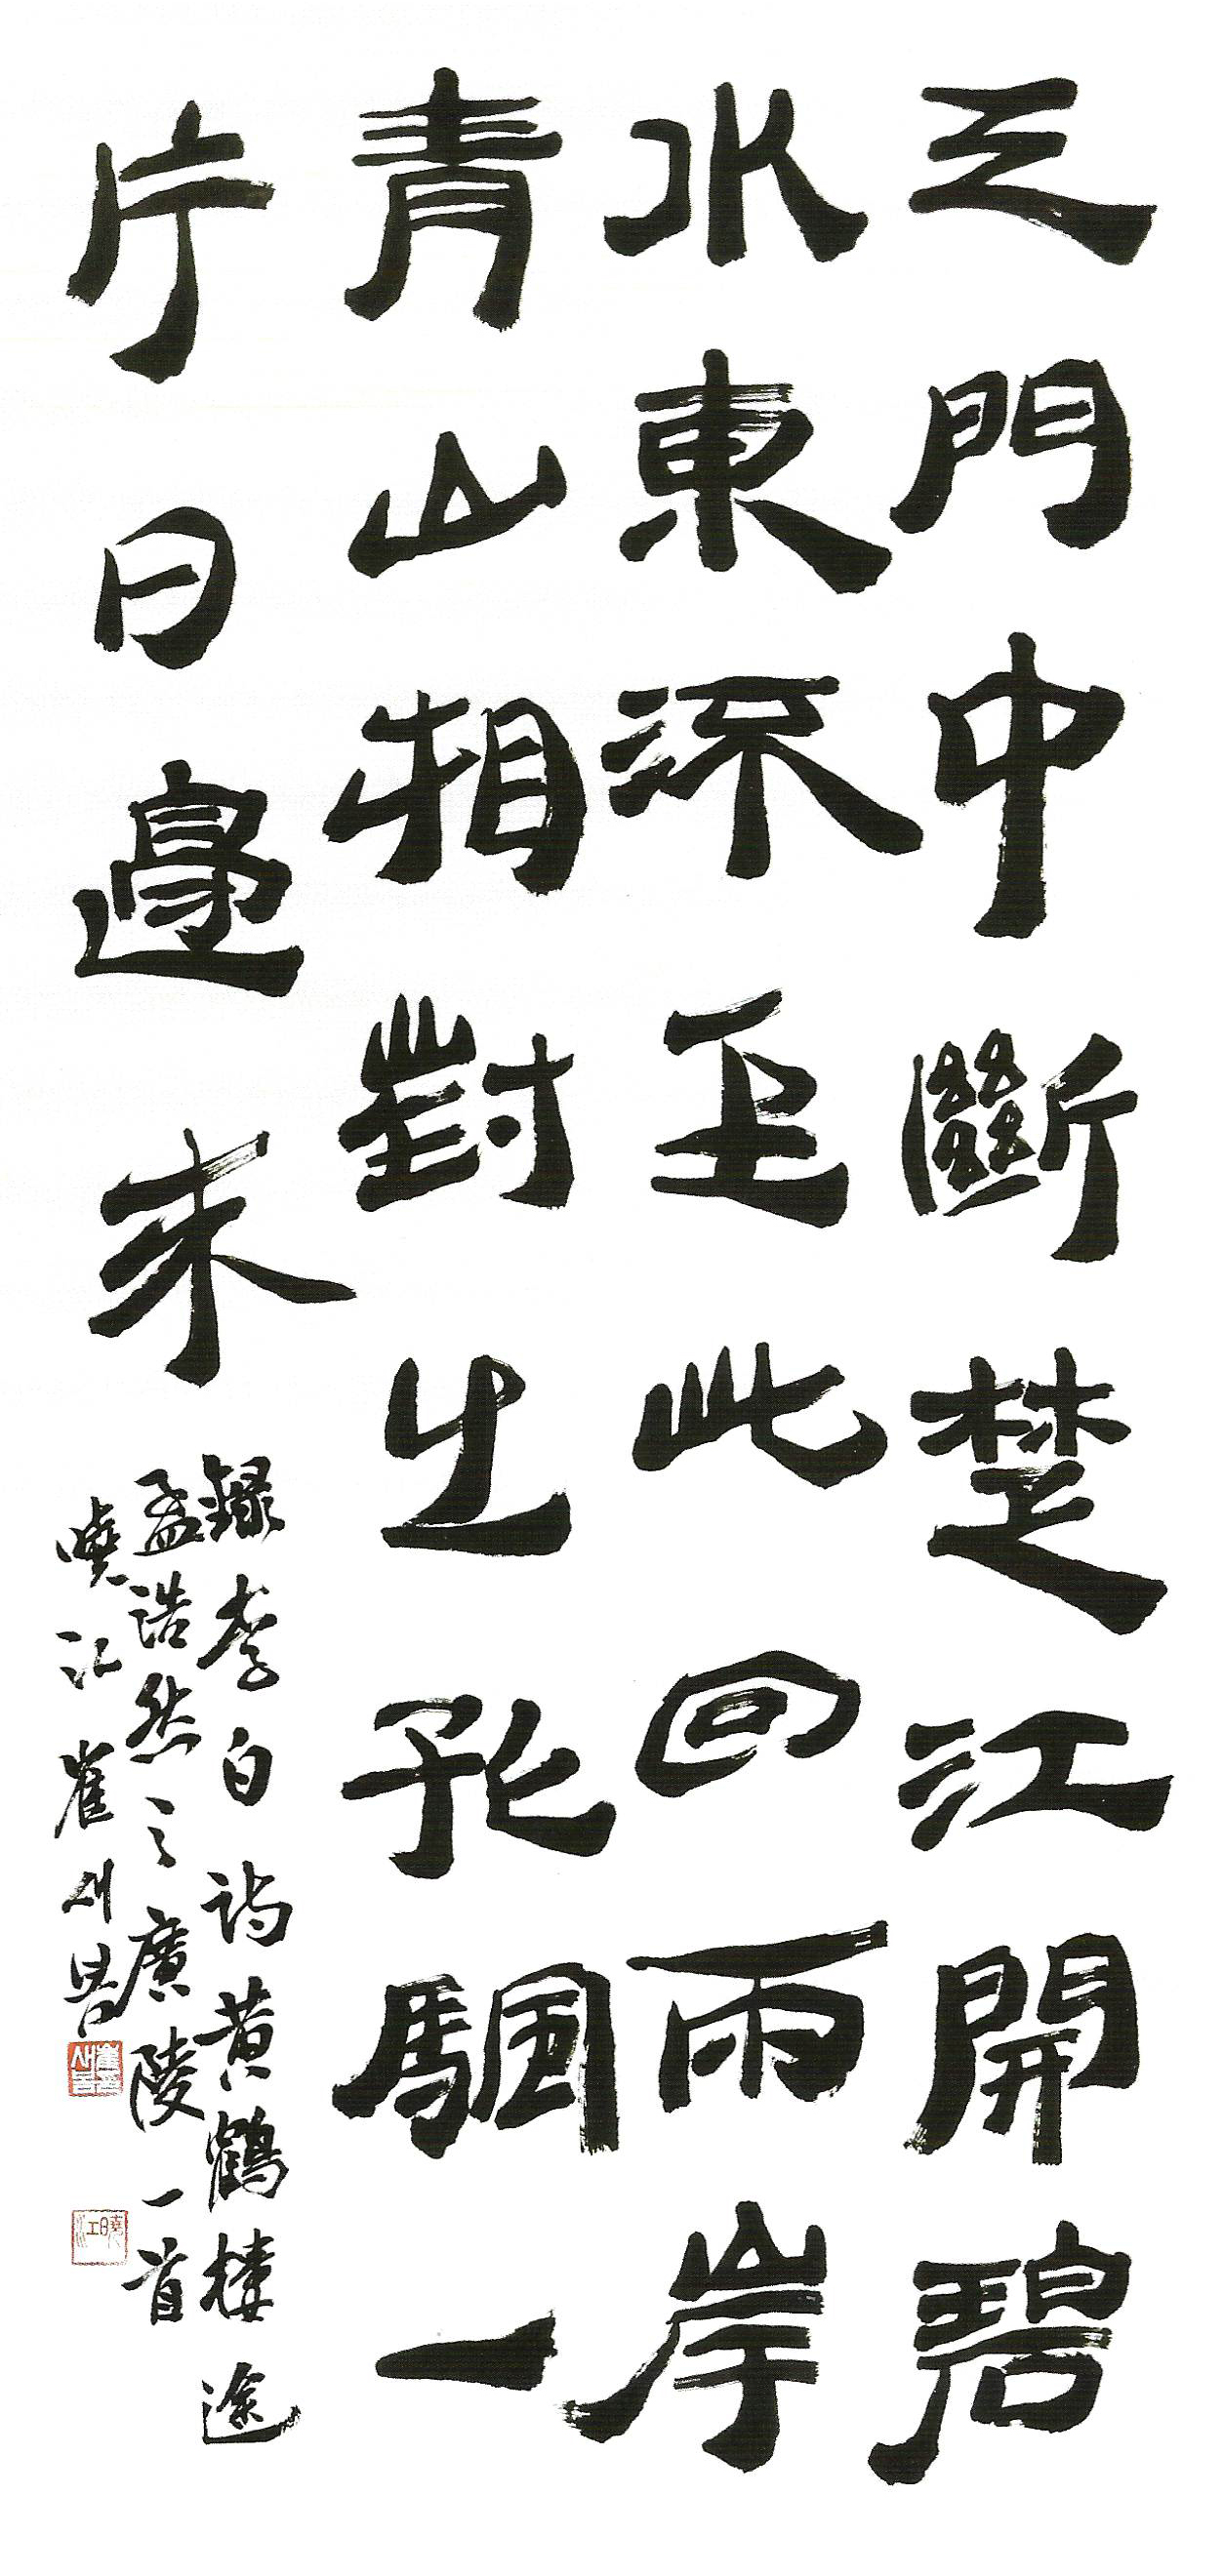 天門中斷楚江開碧
水東流至此回兩岸
青山相對出孤帆一
片日邊来
錄李白詩黃鶴樓送
孟浩然之廣陵一首
曉江崔
曉江